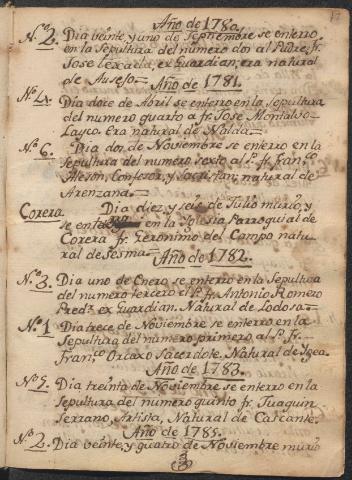 Año de 1780.
N.º 2. Dia veinte, y uno de Septiembre se enterro
en la Sepultura del numero dos al Padre fr.
Jose Texada, ex Guardian, era natural
de Ausejo.
Año de 1781.
N.º 4. Dia doce de Abril se enterro en la Sepultura
del numero quarto a fr. Jose Montalvo
Layco. Era natural de Nalda.
N.º 6. Dia dos de Noviembre se enterro en la
Sepultura del numero sexto al P. fr. Fran.co
Aleson, Confesor, y Sacristan, natural de
Arenzana.
Corera. Dia diez, y seis de Julio murio, y
se en en la Iglesia Parroquial de
Corera fr. Geronimo del Campo natu-
ral de Sesma.
Año de 1782.
N.º 3. Dia uno de Enero se enterro en la Sepultura
del numero tercero el P. fr. Antonio Romero
Pred.r ex Guardian. Natural de Lodosa.
N.º 1 Dia trece de Noviembre se enterro en la
Sepultura del numero primero al P. fr.
Fran.co Sacerdote. Natural de Igea.
Año de 1783.
N.º 5. Dia treinta de Noviembre se enterro en la
Sepultura del numero quinto fr. Juaquin
Serrano, Artista, Natural de Cascante.
Año de 1785.
N.º 2. Dia veinte, y quatro de Noviembre murio